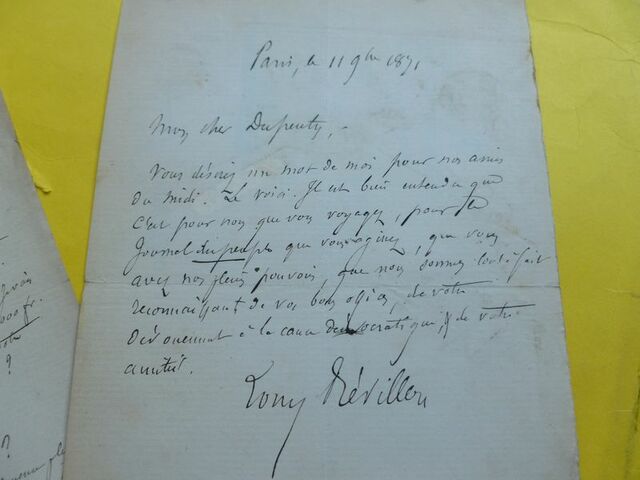 Paris, le 11 9bre 1871
Mon cher Dupeuty,
Vous désirez un mot de moi pour nos amis
du midi. Le voici. Il est bien entendu que
c'est pour nous que vous voyagez, pour le
Journal du peuple que vous agissez, que vous
avez nos pleins pouvoirs, que nous sommes tout à fait
reconnaissant de vos bons offices, de votre
dévouement à la cause démocratique, & de votre
amitié.
Tony Révillon
000 fr.
?
?